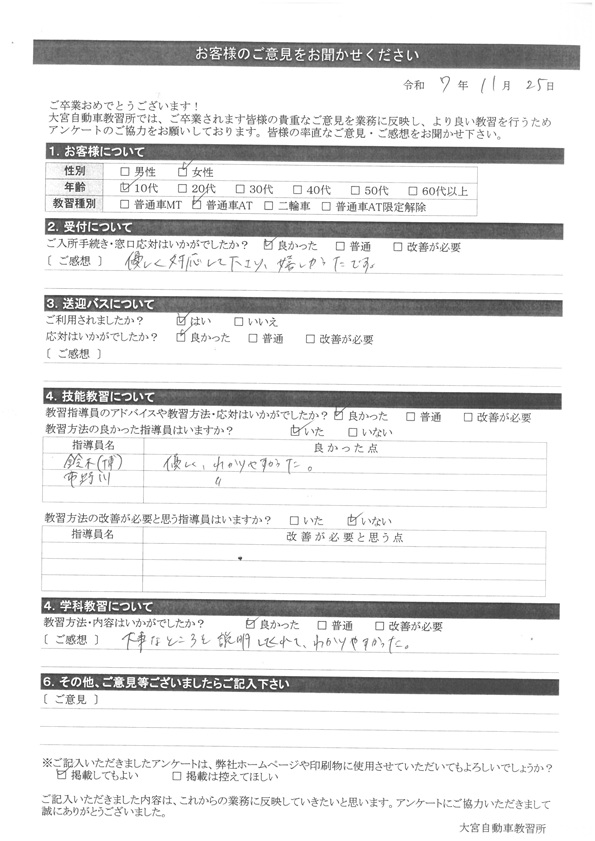 お客様のご意見をお聞かせください
令和 7 年 11 月 25 日
ご卒業おめでとうございます！
大宮自動車教習所では、ご卒業されます皆様の貴重なご意見を業務に反映し、より良い教習を行うため
アンケートのご協力をお願いしております。皆様の率直なご意見・ご感想をお聞かせ下さい。
1. お客様について
性別 □ 男性 ☑ 女性
年齢 ☑ 10代 □ 20代 □ 30代 □ 40代 □ 50代 □ 60代以上
教習種別 □ 普通車MT ☑ 普通車AT □ 二輪車 □ 普通車AT限定解除
2. 受付について
ご入所手続き・窓口応対はいかがでしたか？ ☑ 良かった □ 普通 □ 改善が必要
［ ご感想 ］ 優しく対応して下さり、嬉しかったです。
3. 送迎バスについて
ご利用されましたか？ ☑ はい □ いいえ
応対はいかがでしたか？ ☑ 良かった □ 普通 □ 改善が必要
［ ご感想 ］
4. 技能教習について
教習指導員のアドバイスや教習方法・応対はいかがでしたか？ ☑ 良かった □ 普通 □ 改善が必要
教習方法の良かった指導員はいますか？ ☑ いた □ いない
指導員名 良かった点
鈴木(博) 優しく、わかりやすかった。
市野川 〃
教習方法の改善が必要と思う指導員はいますか？ □ いた ☑ いない
指導員名 改善が必要と思う点
4. 学科教習について
教習方法・内容はいかがでしたか？ ☑ 良かった □ 普通 □ 改善が必要
［ ご感想 ］ 大事なところを説明してくれて、わかりやすかった。
6. その他、ご意見等ございましたらご記入下さい
［ ご意見 ］
※ご記入いただきましたアンケートは、弊社ホームページや印刷物に使用させていただいてもよろしいでしょうか？
☑ 掲載してもよい □ 掲載は控えてほしい
ご記入いただきました内容は、これからの業務に反映していきたいと思います。アンケートにご協力いただきまして
誠にありがとうございました。
大宮自動車教習所